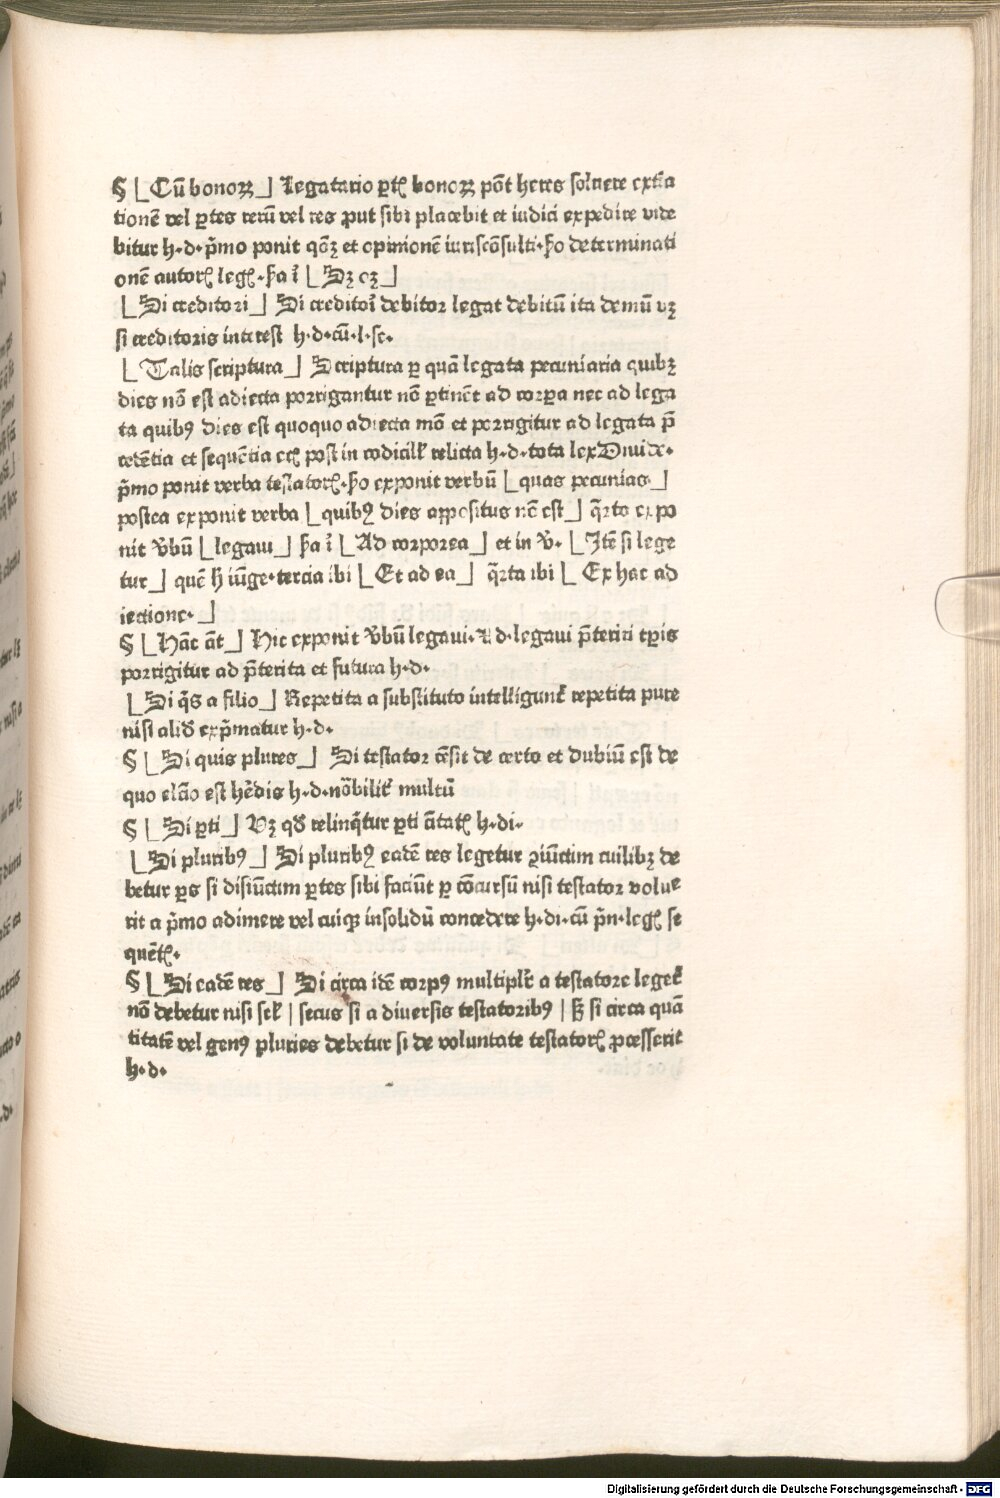 § ⌊Cū bonoꝝ⌋ Legatario ꝑtē bonoꝝ pōt heres soluere extīa
tionē vel ꝑtes rerū vel res ꝓut sibi placebit et iudici expedire vide
bitur h·d· p̄mo ponit qōꝫ et opinionē iuriscōsulti·ẜo determinati
onē autorꝭ legꝭ·ẜa ī ⌊Sꝫ oꝫ⌋
⌊Si creditori⌋ Si creditoī debitor legat debitū ita demū vꝫ
si creditoris interest h·d·cū·l·se·
⌊Talis scriptura⌋ Scriptura ꝑ quā legata pecuniaria quibꝫ
dies nō est adiecta porrigantur nō ꝑtinēt ad corꝑa nec ad lega
ta quibꝰ dies est quoquo adiecta mō et porrigitur ad legata p̄
cedētia et sequētia ecꝭ post in codicilł relicta h·d·tota lex Diuide·
p̄mo ponit verba testatorꝭ·ẜo exponit verbū ⌊quas pecunias⌋
postea exponit verba ⌊quibꝰ dies appositus nē est⌋ q̄rto expo
nit v̄bū ⌊legaui⌋ ẜa ī ⌊Ad corporea⌋ et in v̄· ⌊Itē si lege
tur⌋ quē h iūge·tercia ibi ⌊Et ad ea⌋ q̄rta ibi ⌊Ex hac ad
iectione·⌋
§ ⌊Hāc āt⌋ Hic exponit v̄bū legaui· d·legaui p̄teriti tꝑis
porrigitur ad p̄terita et futura h·d·
⌊Si q̄s a filio⌋ Repetita a substituto intelligunt repetita pure
nisi aliđ exp̄matur h·d·
§ ⌊Si quis plures⌋ Si testator cēsit de certo et dubiū est de
quo elcīo est hēdis h·d·nōbilit multū
§ ⌊Si ꝑti⌋ Vꝫ qđ relinq̄tur ꝑti ātatꝭ h·di·
⌊Si pluribꝰ⌋ Si pluribꝰ eadē res legetur ꝯiūctim cuilibꝫ de
betur ꝑs si disiūctim ꝑtes sibi faciūt ꝑ cōcursū nisi testator volue
rit a p̄mo adimere vel cuiqꝫ insolidū concedere h·di·cū p̄n·legꝭ se
quētꝭ·
§ ⌊Si eadē res⌋ Si circa idē corpꝰ multiplr̄ a testatore leget
nō debetur nisi sel | secus si a diuersis testatoribꝰ | ß si circa quā
titatē vel genꝰ pluries debetur si de voluntate testatorꝭ ꝓcesserit
h·d·
Digitalisierung gefördert durch die Deutsche Forschungsgemeinschaft - DFG